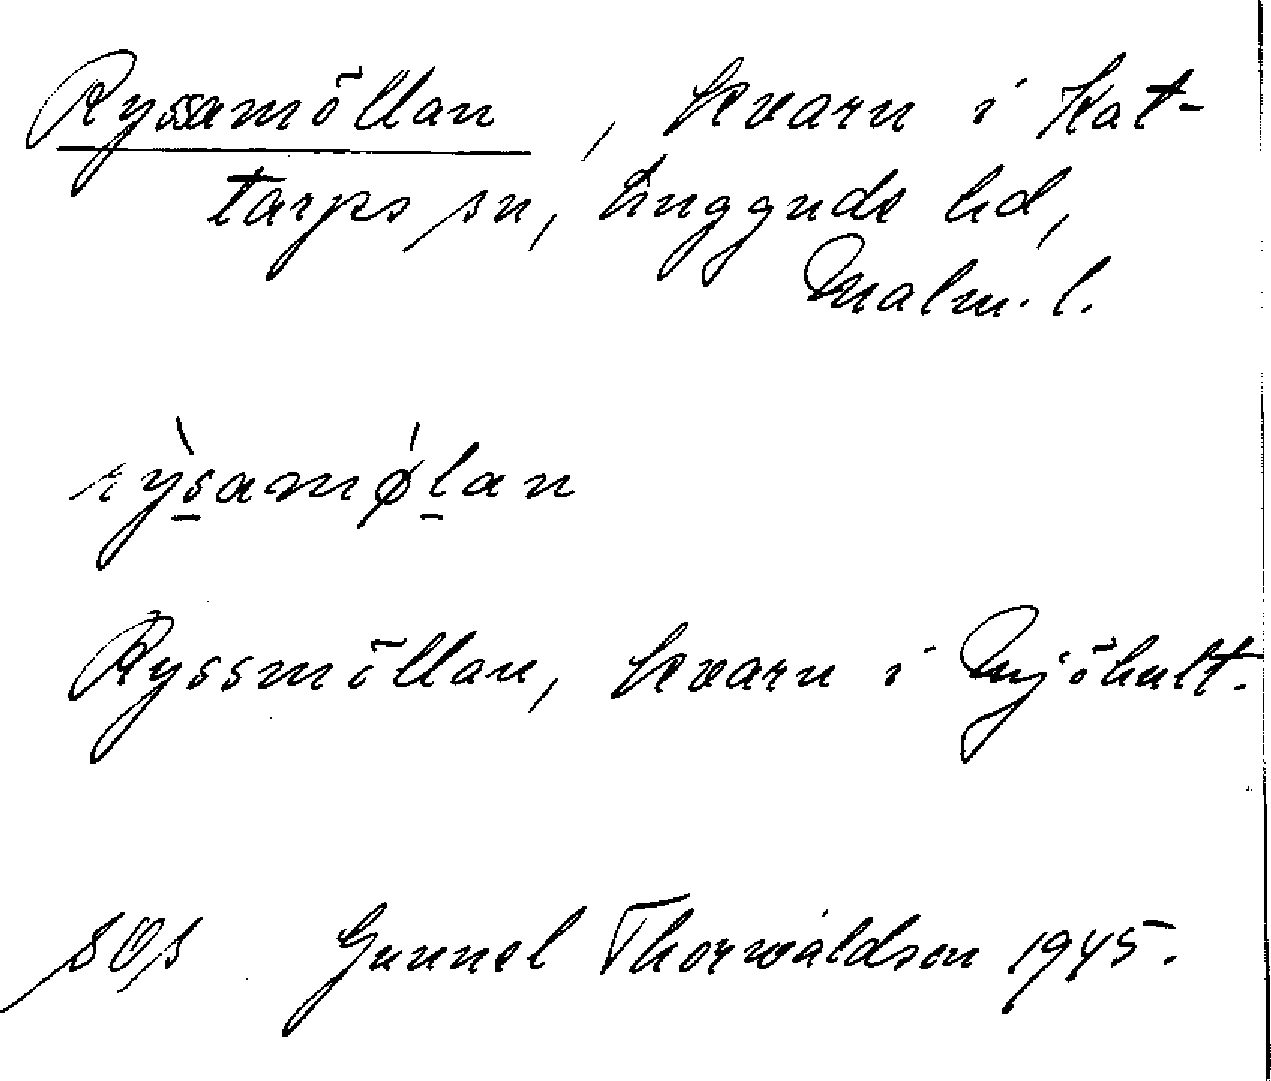 Ryssamöllan, kvarn i Kat-
tarps sn, Luggude hd,
Malm. l.
rỳs̲amǿl̲an
Ryssmöllan, kvarn i Mjöhult.
s Gunnel Thorwaldson 1945.